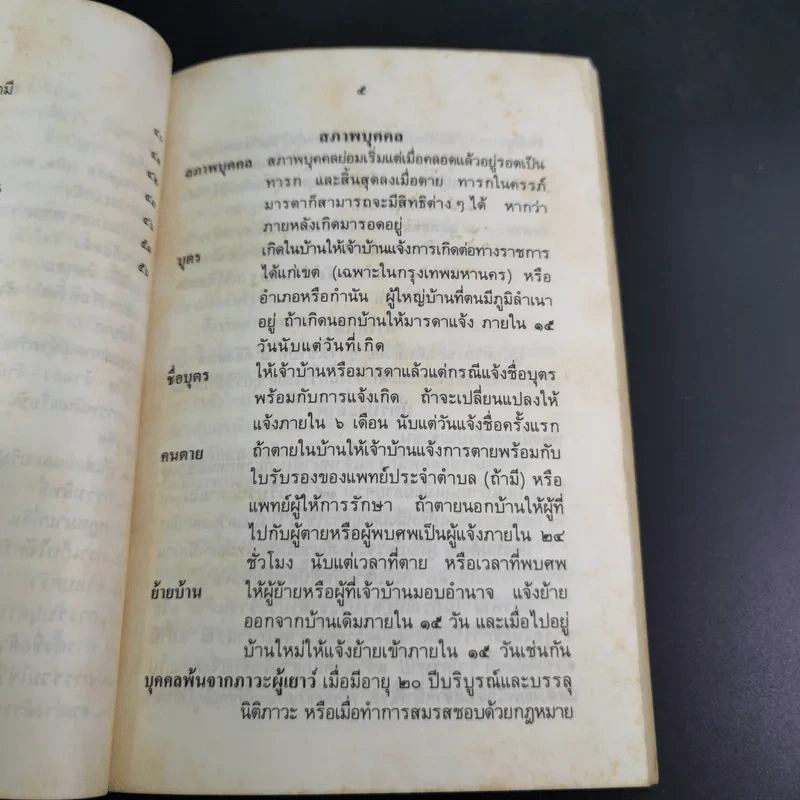 ๕
สภาพบุคคล
สภาพบุคคล สภาพบุคคลย่อมเริ่มแต่เมื่อคลอดแล้วอยู่รอดเป็น
ทารก และสิ้นสุดลงเมื่อตาย ทารกในครรภ์
มารดาก็สามารถจะมีสิทธิต่าง ๆ ได้ หากว่า
ภายหลังเกิดมารอดอยู่
บุตร เกิดในบ้านให้เจ้าบ้านแจ้งการเกิดต่อทางราชการ
ได้แก่เขต (เฉพาะในกรุงเทพมหานคร) หรือ
อำเภอหรือกำนัน ผู้ใหญ่บ้านที่ตนมีภูมิลำเนา
อยู่ ถ้าเกิดนอกบ้านให้มารดาแจ้ง ภายใน ๑๕
วันนับแต่วันที่เกิด
ชื่อบุตร ให้เจ้าบ้านหรือมารดาแล้วแต่กรณีแจ้งชื่อบุตร
พร้อมกับการแจ้งเกิด ถ้าจะเปลี่ยนแปลงให้
แจ้งภายใน ๖ เดือน นับแต่วันแจ้งชื่อครั้งแรก
คนตาย ถ้าตายในบ้านให้เจ้าบ้านแจ้งการตายพร้อมกับ
ใบรับรองของแพทย์ประจำตำบล (ถ้ามี) หรือ
แพทย์ผู้ให้การรักษา ถ้าตายนอกบ้านให้ผู้ที่
ไปกับผู้ตายหรือผู้พบศพเป็นผู้แจ้งภายใน ๒๔
ชั่วโมง นับแต่เวลาที่ตาย หรือเวลาที่พบศพ
ย้ายบ้าน ให้ผู้ย้ายหรือผู้ที่เจ้าบ้านมอบอำนาจ แจ้งย้าย
ออกจากบ้านเดิมภายใน ๑๕ วัน และเมื่อไปอยู่
บ้านใหม่ให้แจ้งย้ายเข้าภายใน ๑๕ วันเช่นกัน
บุคคลพ้นจากภาวะผู้เยาว์ เมื่อมีอายุ ๒๐ ปีบริบูรณ์และบรรลุ
นิติภาวะ หรือเมื่อทำการสมรสชอบด้วยกฎหมาย